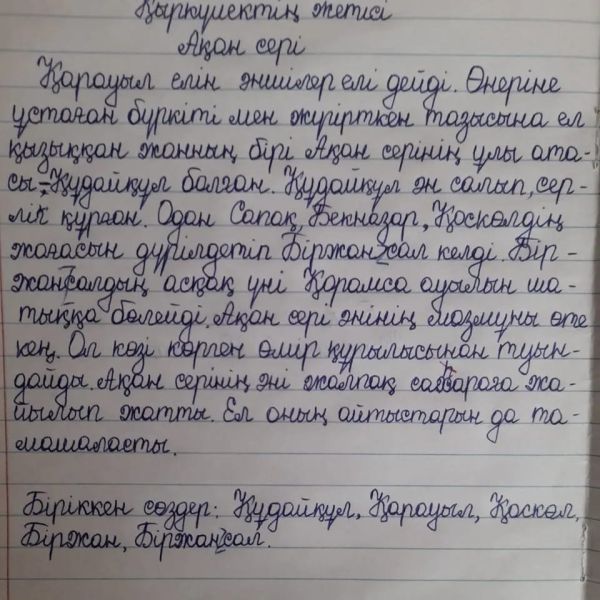 Қыркүйектің жетісі
Ақан сері
Қарауыл елін әншілер елі дейді. Өнеріне
ұстаған бүркіті мен жүгірткен тазысына ел
қызыққан жанның бірі Ақан серінің ұлы ата-
сы-Құдайқұл болған. Құдайқұл ән салып, сер-
лік құрған. Одан Сапақ, Бекназар, Қоскөлдің
жағасын дүрілдетіп Біржан-сал келді. Бір-
жансалдың асқақ үні Қарамса ауылын ша-
тыққа бөлейді. Ақан сері әнінің мазмұны өте
кең. Ол көзі көрген өмир құрылысынан туын-
дайды. Ақан серінің әні жалпақ
жа-
йылып жатты. Ел оның айтыстарын да та-
машаласты.
Біріккен сөздер: Құдайқұл, Қарауыл, Қоскөл,
Біржан, Біржан-сал.